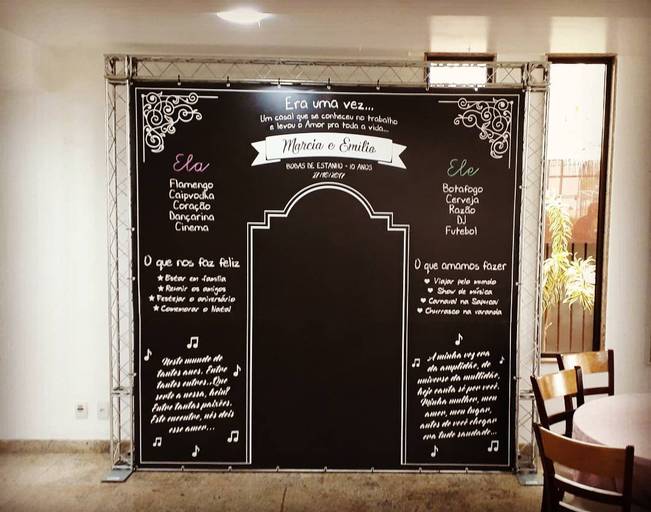 Era uma vez...
Um casal que se conheceu no trabalho
e levou o Amor pra toda a vida...
Marcia e Emilio
BODAS DE ESTANHO - 10 ANOS
Ela
Flamengo
Caipvodka
Coração
Dançarina
Cinema
Ele
Botafogo
Cerveja
Razão
DJ
Futebol
O que nos faz feliz
Estar em família
Reunir os amigos
Festejar o aniversário
Comemorar o Natal
O que amamos fazer
Viajar pelo mundo
Show de música
Carnaval na Sapucaí
Churrasco na varanda
Neste mundo de
tantos anos, Entre
tantos outros, Que
sorte a nossa, hein?
Entre tantas paixões,
Este encontro, nós dois
esse amor...
A minha voz era
da amplidão, do
universo da multidão,
hoje canta só por você.
Minha mulher, meu
amor, meu lugar,
antes de você chegar
era tudo saudade...